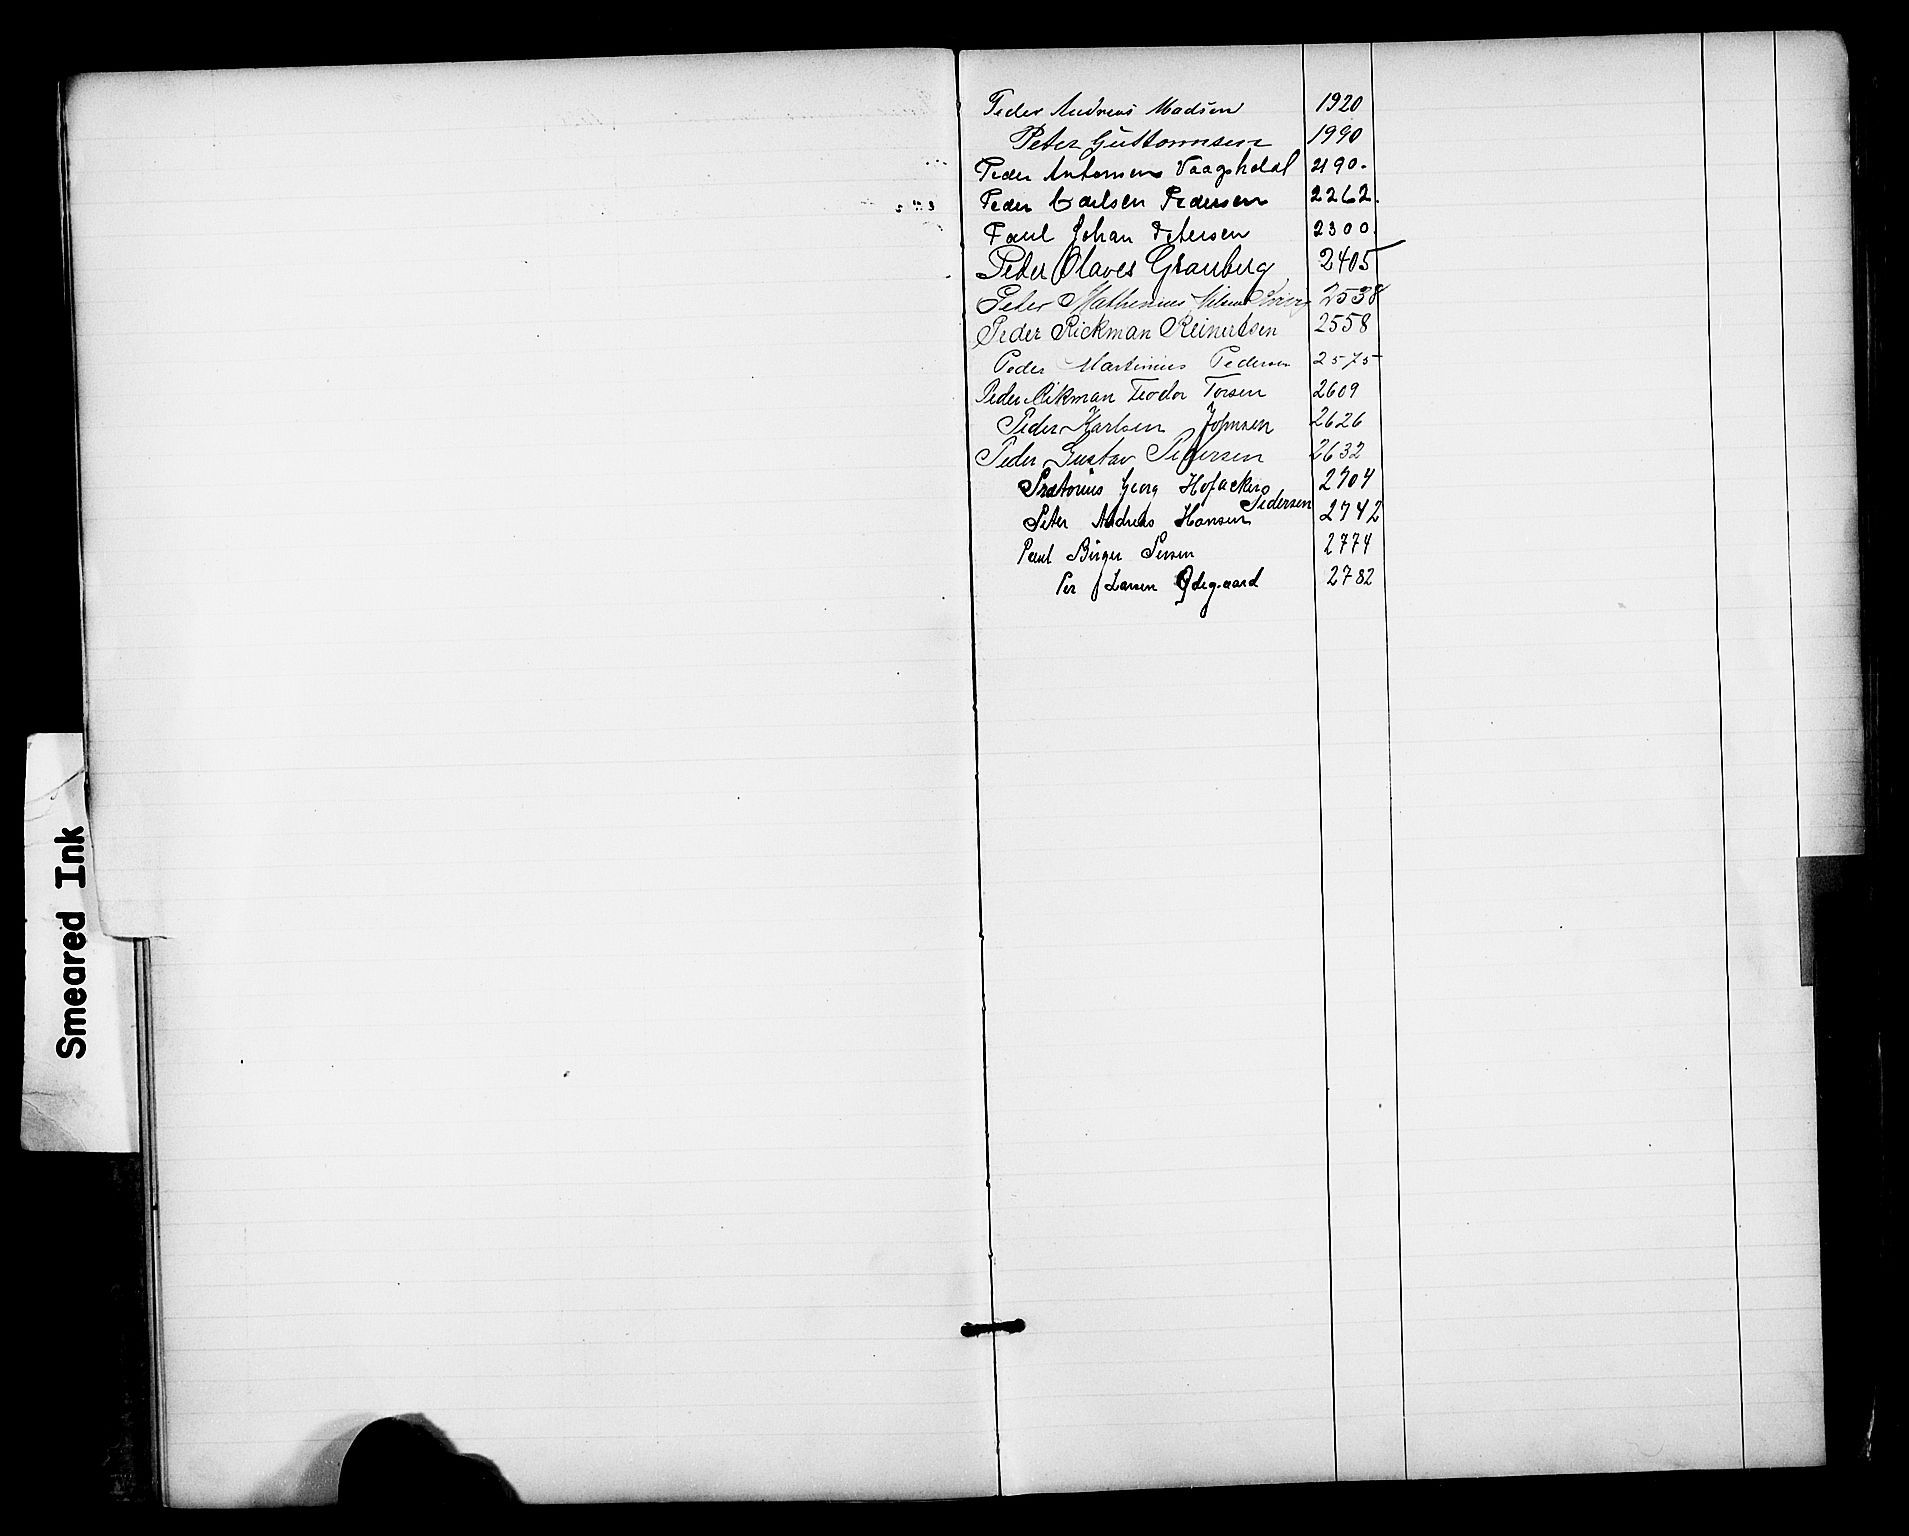 Peder Andreas Madsen 1920
Peter Guttormsen 1990
Peder Antonsen Vaagshdal 2190.
Peder Carlsen Pedersen 2262.
Paul Johan Petersen 2300.
Peder Olaves Granberg 2405
Peter Mathenius 2538
Peder Rickman Reinertsen 2558
Peder Martinius Pedersen 2575
Peder Rikman Teodor Torsen 2609
Peder Karlsen Johnsen 2626
Peder Gustav Pedersen 2632
Prætorius Georg Hofacker 2704
Pedersen
Peter Andreas Hansen 2742
Paul Birger 2774
Per Larsen Ødegaard 2782
Smeared Ink